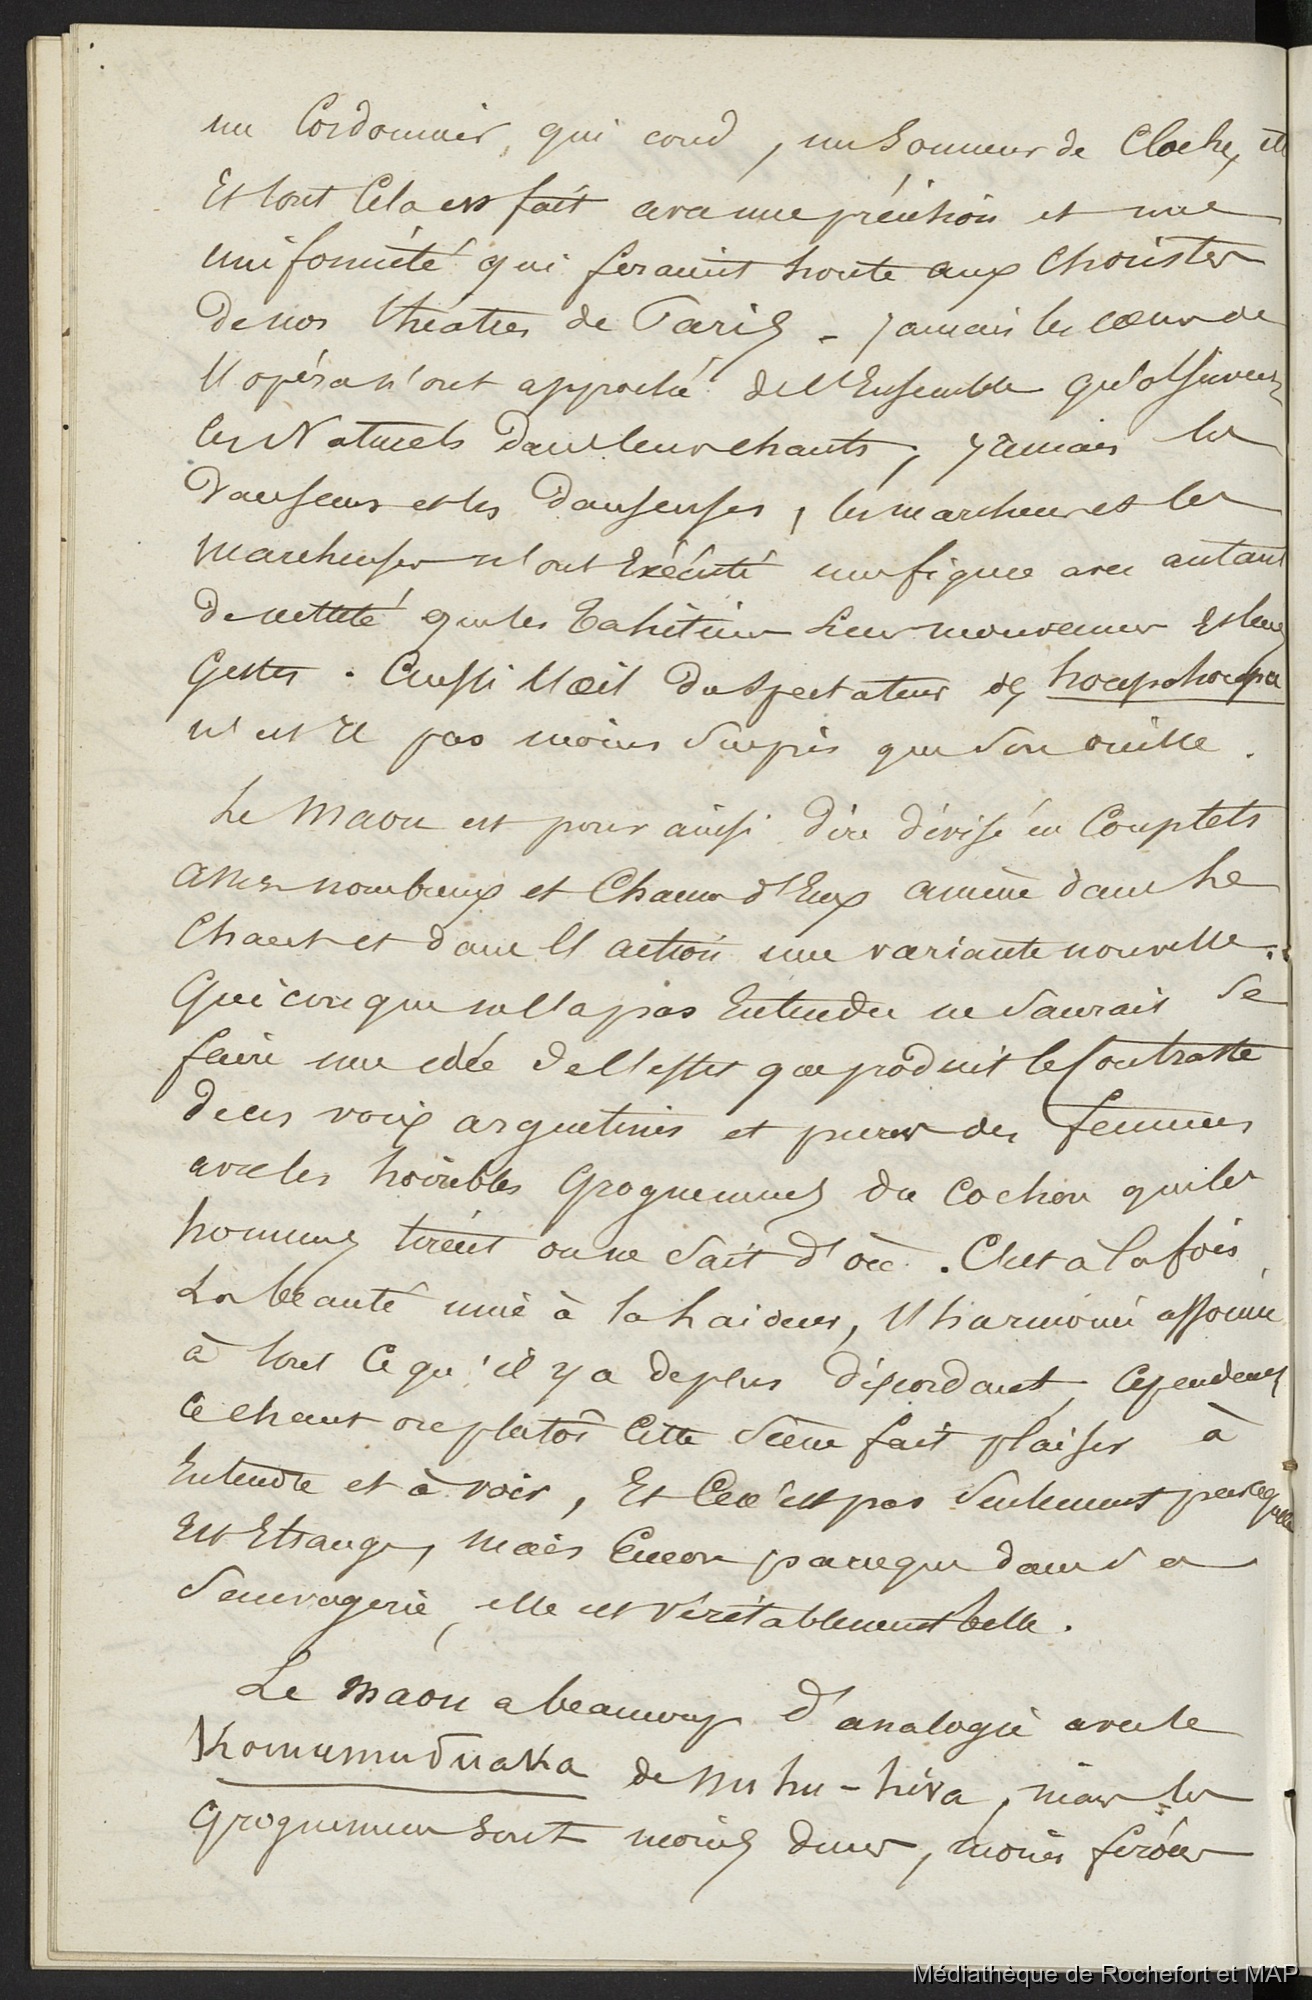 un Cordonnier, qui coud, un Sonneur de Cloche, etc
Et tout Cela est fait avec une précision et une
uniformité qui feraient honte aux Choristes
de nos théatres de Paris - jamais les cœurs de
l'opéra n'ont approché de l'Ensemble qu'observent
les Naturels dans leurs chants, jamais les
Danseurs et les Danseuses, les marcheurs et les
Marcheuses n'ont Exécuté une figure avec autant
de netteté que les Tahitiens leurs mouvemens et leurs
Gestes. Aussi l'œil du spectateur de houpahoupa
n'est il pas moins surpris que son oreille.
Le Maou est pour ainsi dire divisé en Couplets
assez nombreux et Chacun d'Eux amène dans le
Chant et dans l'action une variante nouvelle.
Quiconque ne l'a pas Entendu ne saurait se
faire une idée de l'effet que produit le Contraste
de ces voix argentines et pures des femmes
avec les horribles Grognemens du Cochon que les
hommes tirent on ne sait d'où. C'est à la fois
La beauté unie à la haideur, l'harmonie associée
à tout Ce qu'il y a de plus discordant, Cependant
Ce chant ou plutôt Cette Scène fait plaisir à
Entendre et à voir, Et Ce n'est pas seulement parcequelle
Est Etrange, mais Encore parceque dans sa
Sauvagerie, elle est véritablement belle.
Le Maou a beaucoup d'analogie avec le
Komumuduaka de Nuhu-hiva, mais les
Grognemens sont moins durs, moins féroces
Médiathèque de Rochefort et MAP